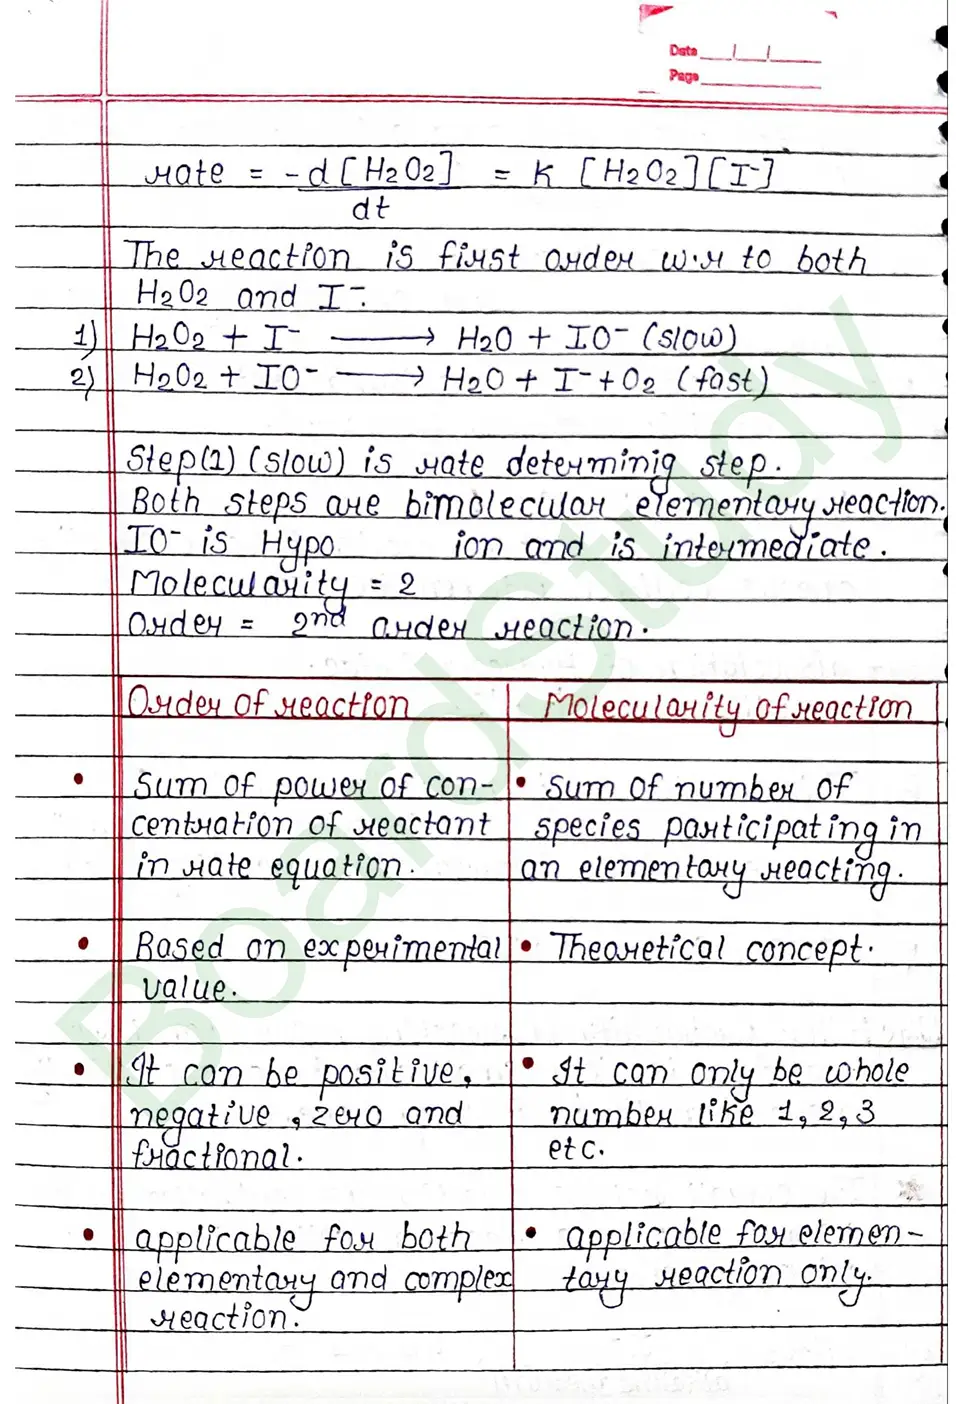 Date __/__/__
Page
rate = -d[H2O2]/dt = K [H2O2][I⁻]
The reaction is first order w.r to both
H2O2 and I⁻.
1) H2O2 + I⁻ ⟶ H2O + IO⁻ (slow)
2) H2O2 + IO⁻ ⟶ H2O + I⁻ + O2 (fast)
Step(1) (slow) is rate determinig step.
Both steps are bimolecular elementary reaction.
IO⁻ is Hypo ion and is intermediate.
Molecularity = 2
Order = 2nd order reaction.
Order of reaction
• Sum of power of con-
centration of reactant
in rate equation.
• Based on experimental
value.
• It can be positive,
negative, zero and
fractional.
• applicable for both
elementary and complex
reaction.
Molecularity of reaction
• Sum of number of
species participating in
an elementary reacting.
• Theoretical concept.
• It can only be whole
number like 1, 2, 3
etc.
• applicable for elemen-
tary reaction only.
BoardStudy